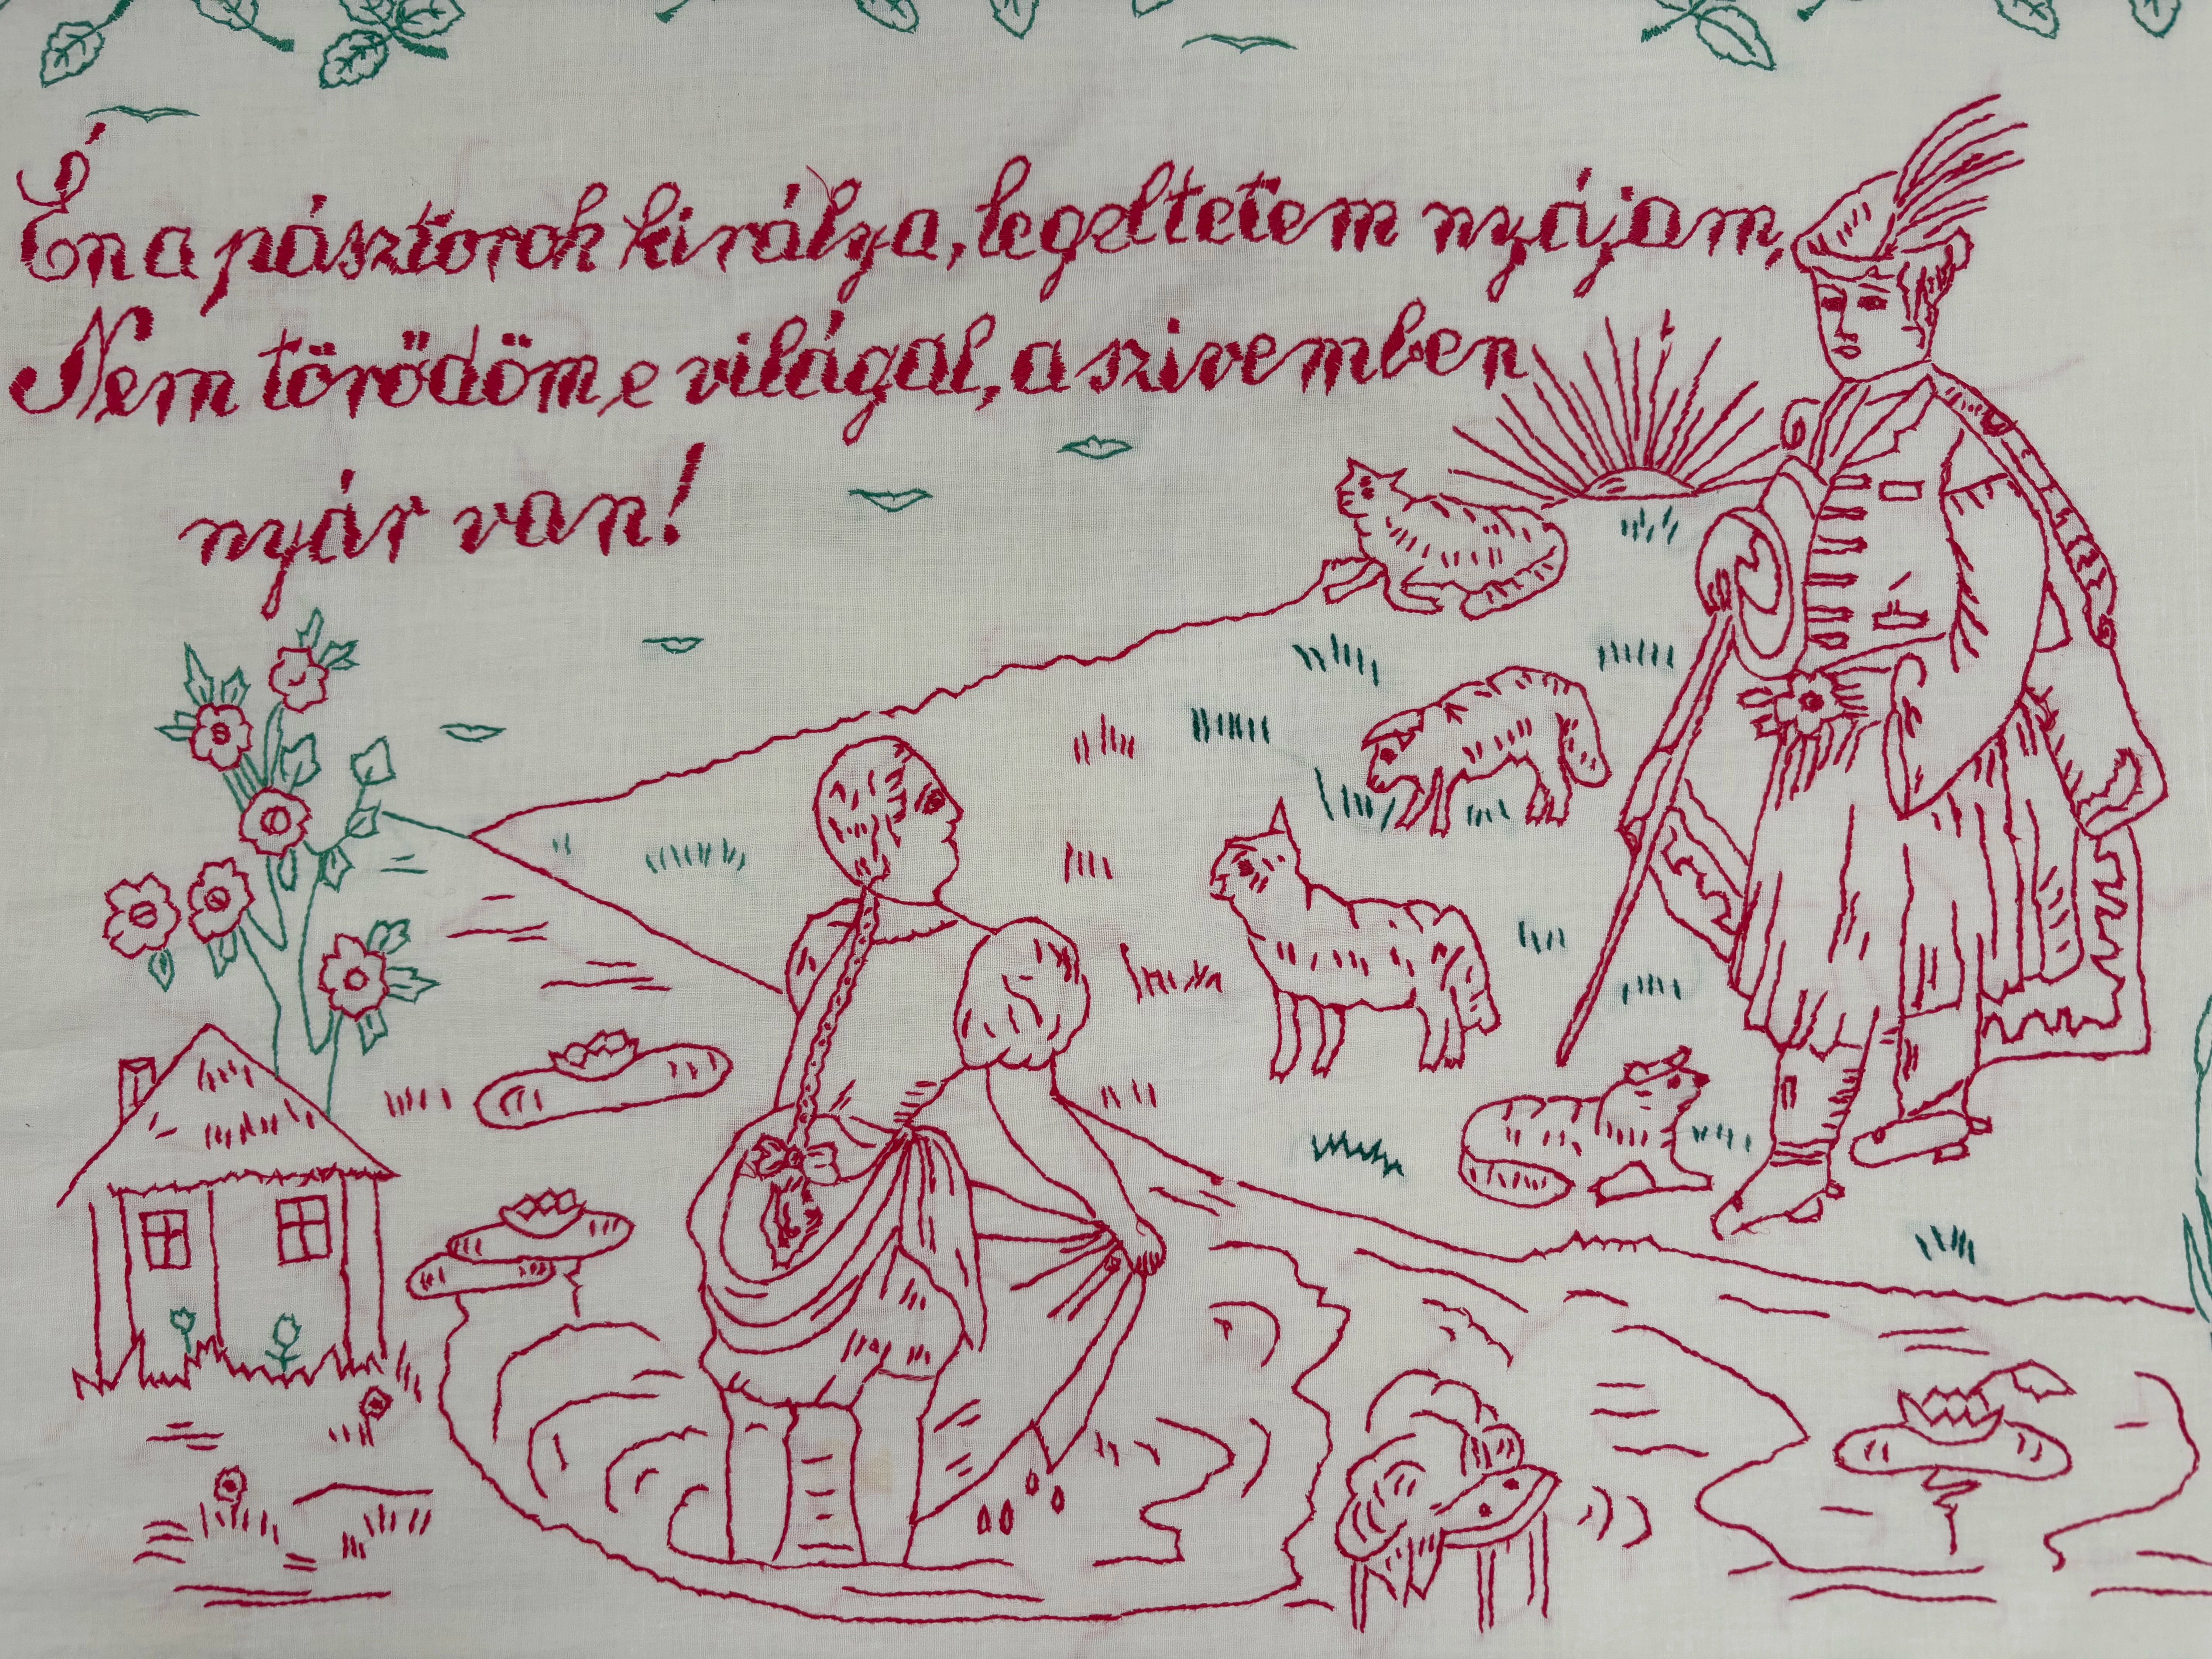 Én a pásztorok királya, legeltetem nyájam,
Nem törődöm, e világal, a szivemben
nyár van!